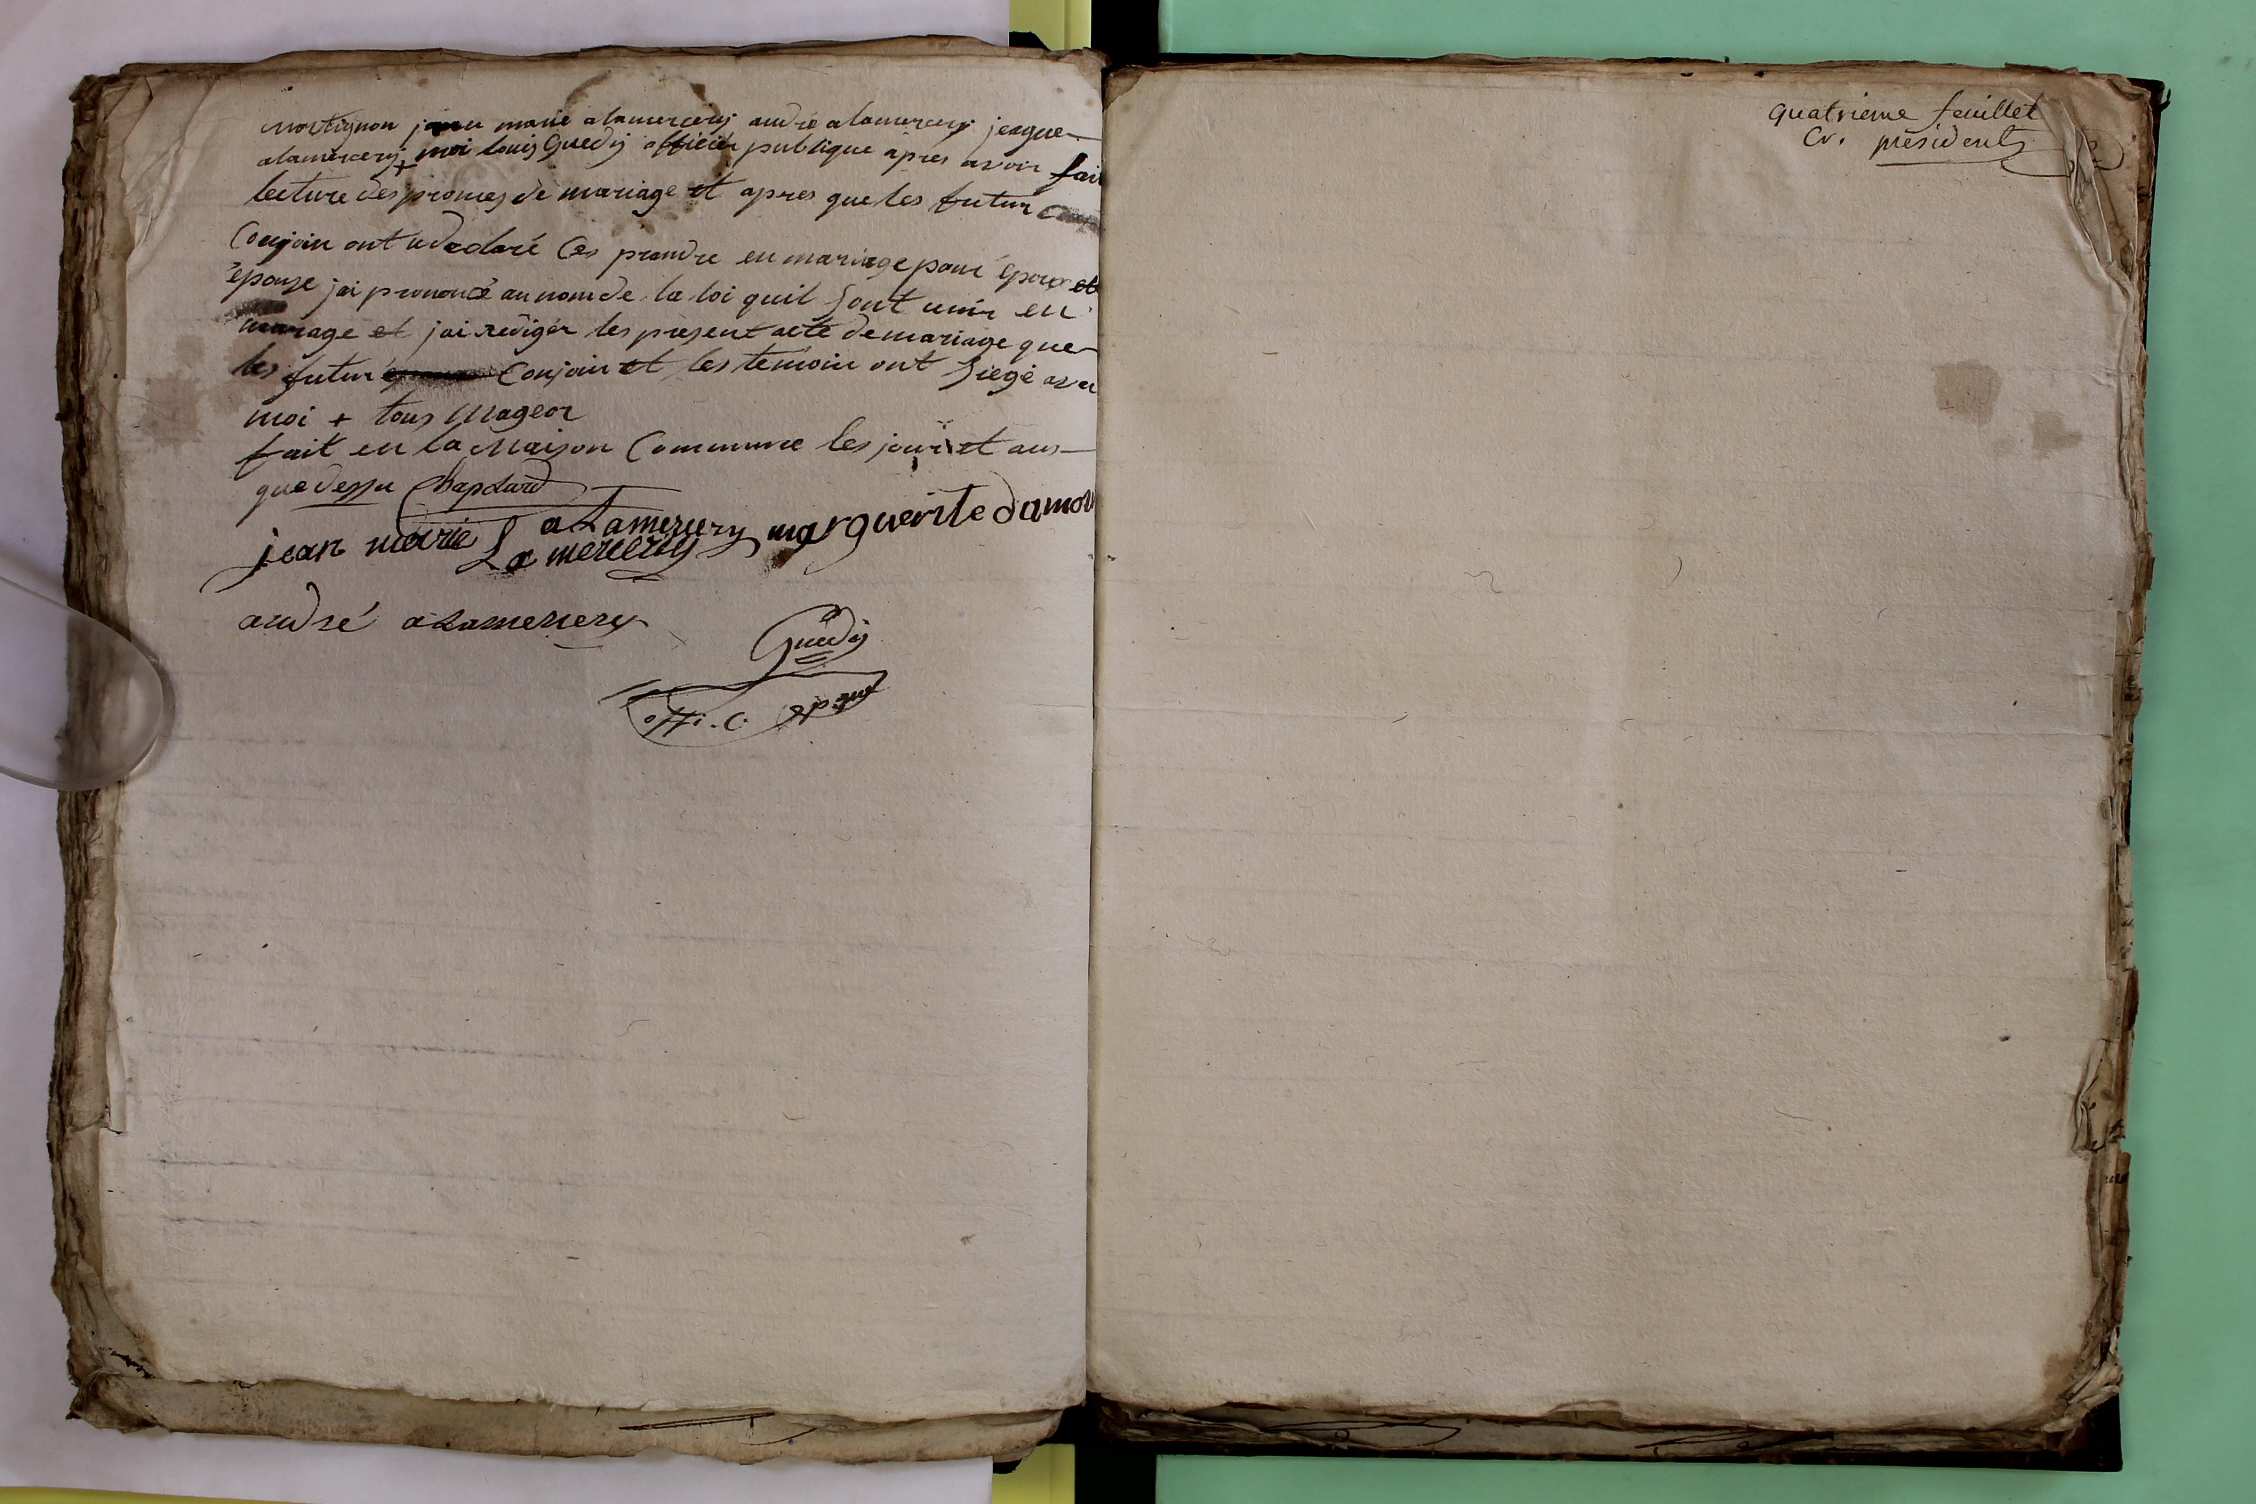 Montignon jean marie alamercery andré alamercery jacque
alamercery + moi louis Guedy officier publique apres avoir fait
lecture des promes de mariage et apres que les futur
Conjoin ont declaré Ces prendre en mariage pour epoux et
épouze jai prononcé au nom de la loi quil sont unir en
mariage et jai rediger les present acte de mariage que
les futur Conjoin et les temoin ont siegé avec
moi + tous Mageor
fait en la Maison Commune les jour et ans
que dessu Chapolard
jean marie alamercery marguerite damour
La mercery
andré alamercery
Guedy
offi. C.
quatrieme feuillet
Cv. président